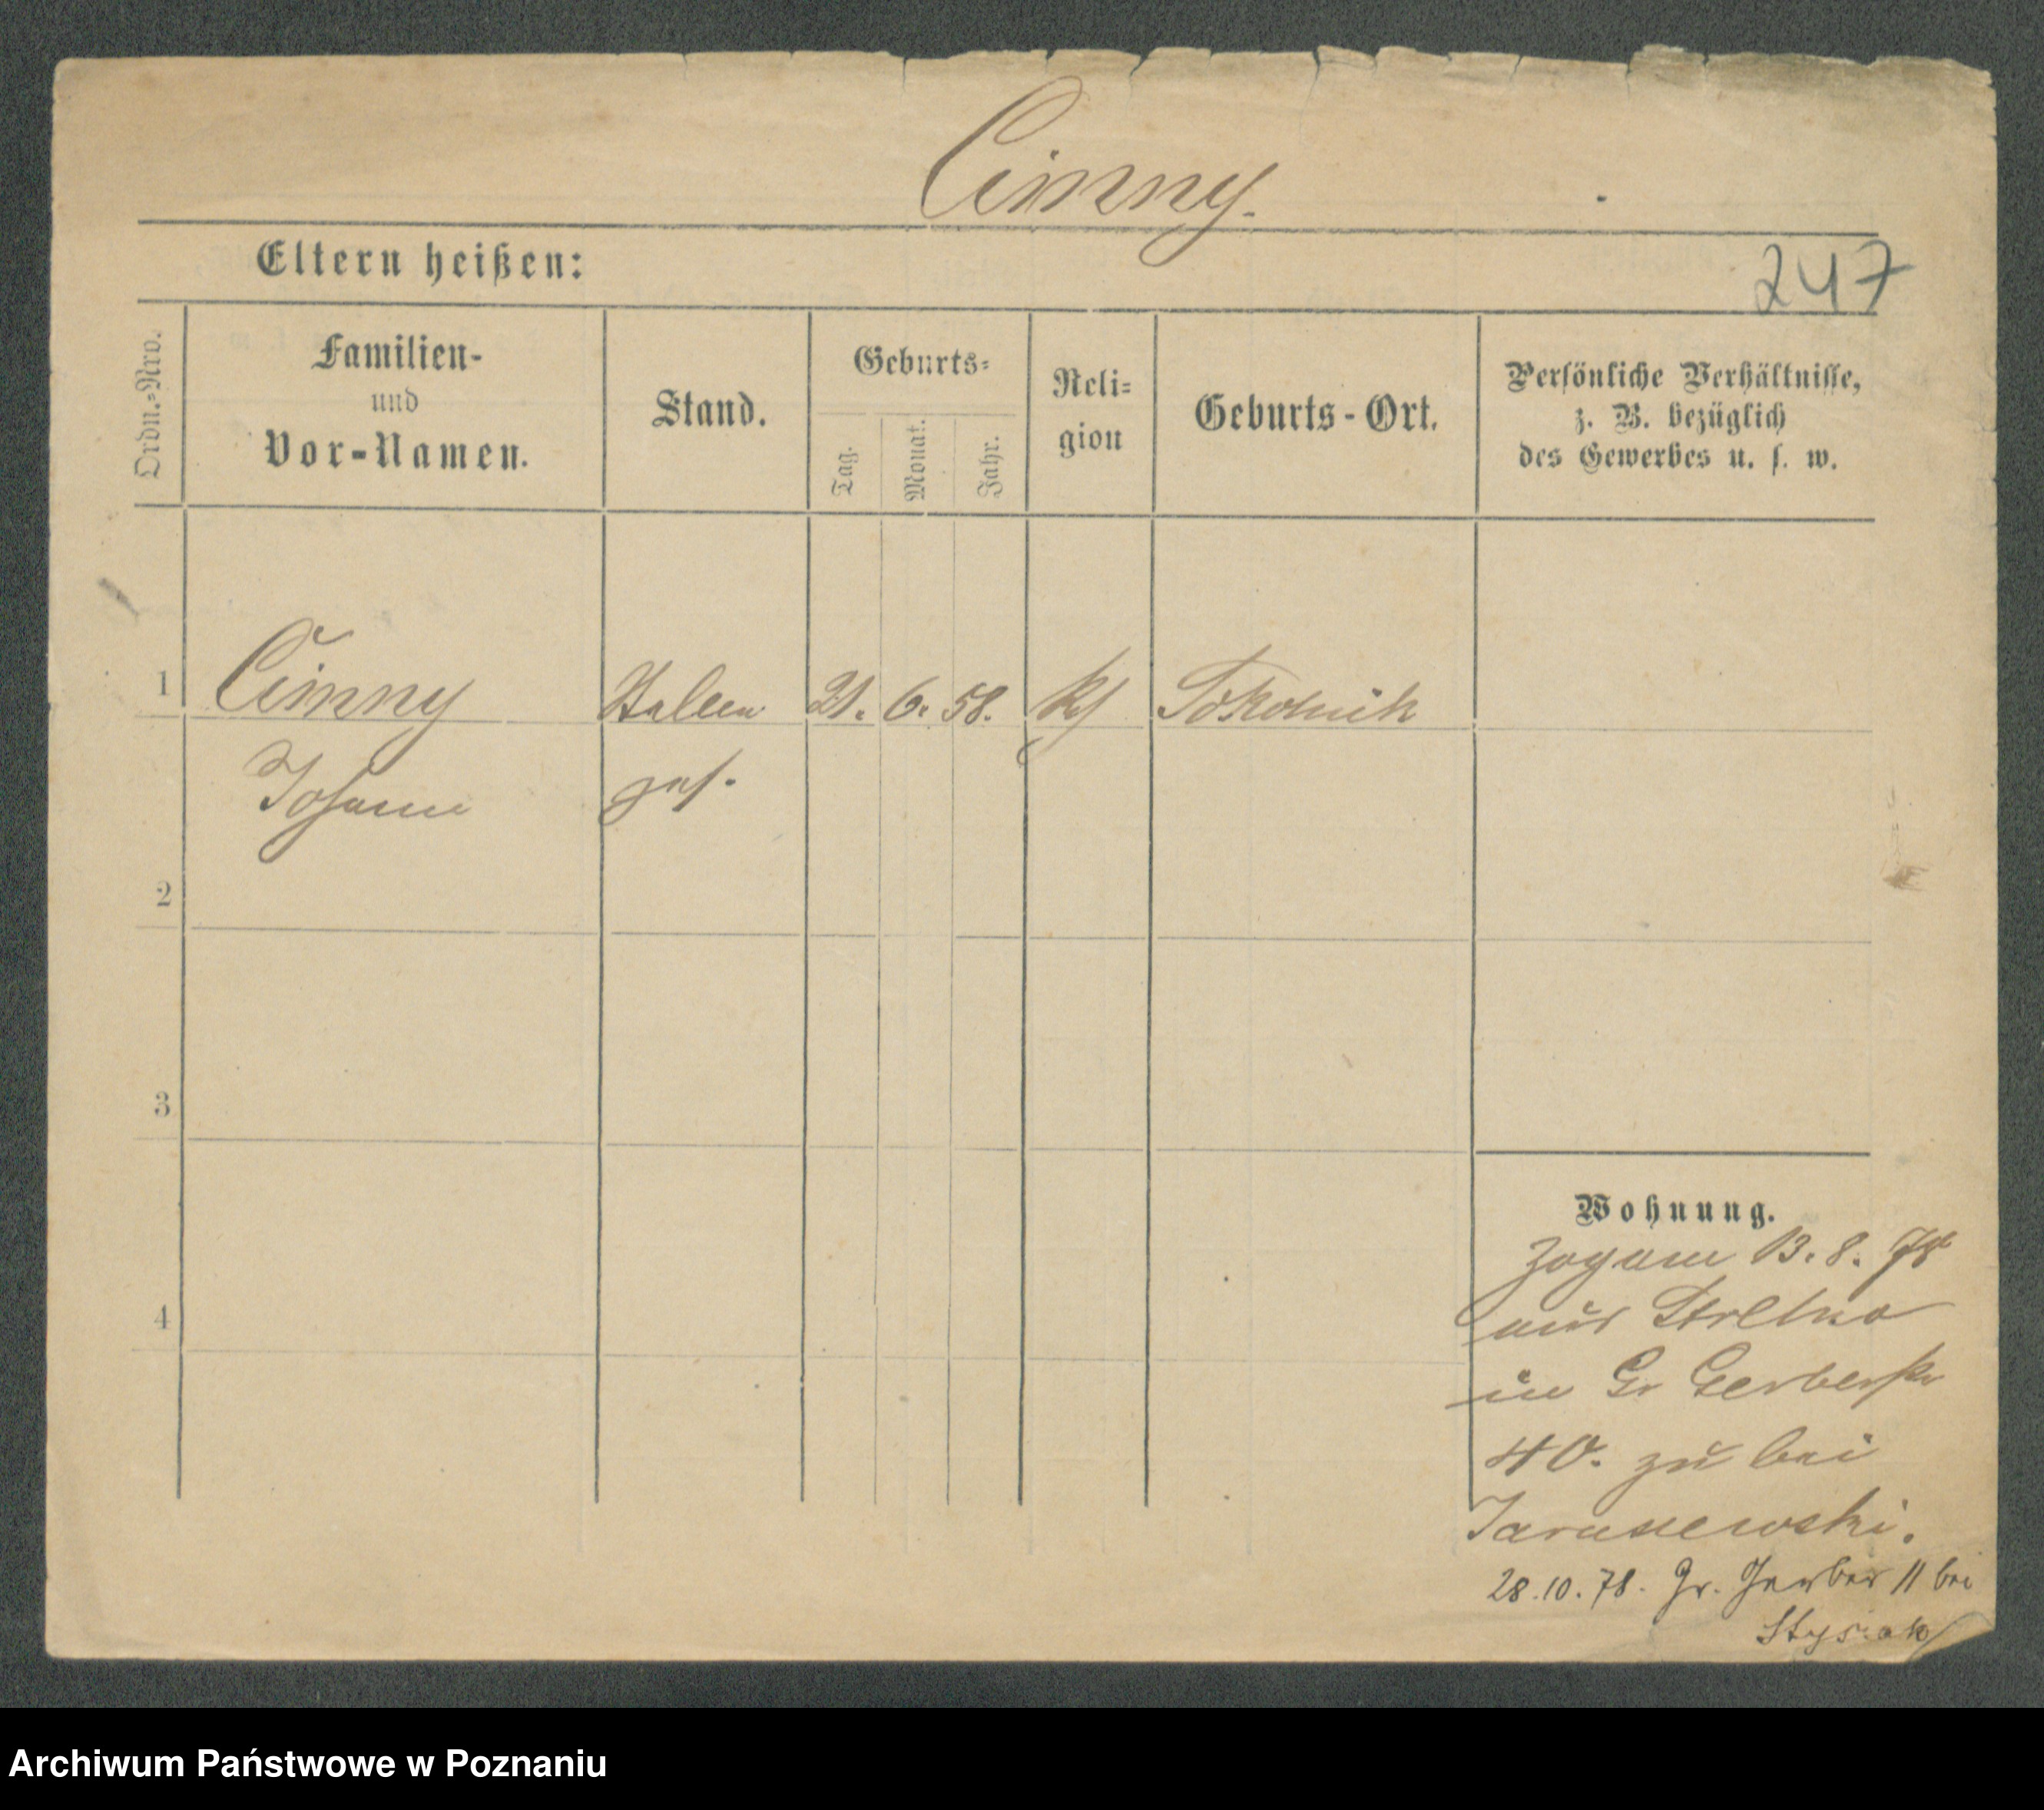 Cinny.
Eltern heißen:
247
Ordn.-Nro.
Familien-
und
Vor-Namen.
Stand.
Geburts-
Tag.
Monat.
Jahr.
Reli-
gion
Geburts-Ort.
Persönliche Verhältnisse,
z. B. bezüglich
des Gewerbes u. s. w.
1 Cinny 21. 6. 58.
Johann
2
3
4
Wohnung.
13. 8. 78
aus Strelno
in Gr Gerberstr
40. zu bei
28.10.78. Gr. Gerber 11 bei
Stysiak
Archiwum Państwowe w Poznaniu